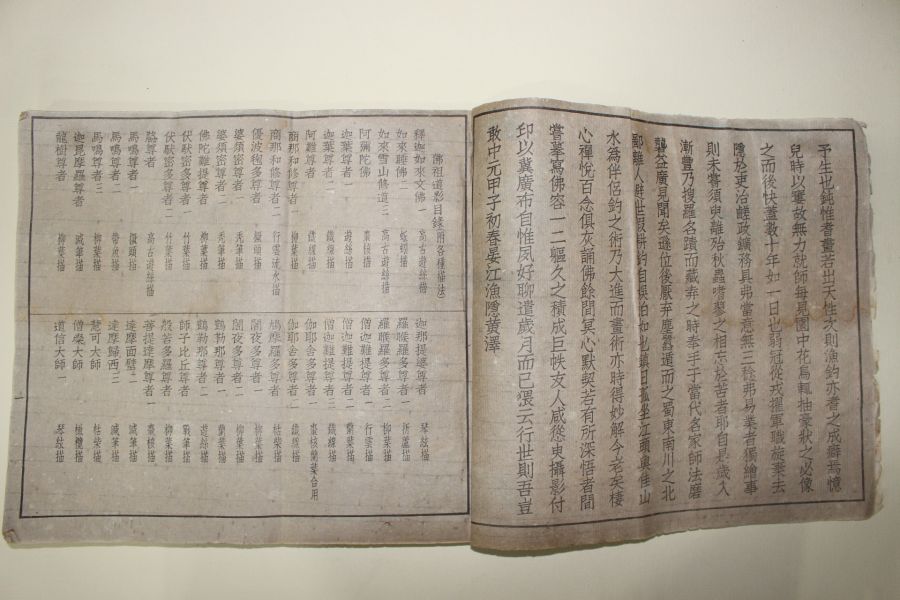 予生也鈍惟耆畫若出天性次則漁釣亦耆之成癖焉憶
兒時以寠故無力就師每見園中花鳥輒抽豪狀之必像
之而後快蓋數十年如一日也弱冠從戎擢軍職旋棄去
隱於吏治鹺政鑛務具弗當意無三稔弗易業者獨繪事
則未嘗須臾離殆秋蟲嗜蓼之相忘於苦者耶自是歲入
漸豐乃搜羅名蹟而藏弆之時奉手于當代名家師法磨
襲益廣見聞矣遜位後厭弃塵囂遁而之蜀東南川之北
鄙離人辟世假耕釣自娛怡如也鎮日孤坐江頭奧佳山
水為伴侶釣之術乃大進而畫術亦時得妙解今老矣棲
心禪悅百念俱灰誦佛餘閒冥心默契若有所深悟者間
嘗摹寫佛容一二軀久之積成巨帙友人咸慫臾攝影付
印以冀廣布自惟夙好聊遣歲月而已猥云行世則吾豈
敢中元甲子初春晏江漁隱黃澤
佛祖道影目錄（附各種描法）
釋迦如來文佛一 高古遊絲描
如來睡佛二 蚯蚓描
如來雪山修道三 高古遊絲描
阿彌陀佛 棗核描
迦葉尊者一 遊絲描
迦葉尊者二 鐵線描
阿難尊者 鐵線描
商那和修尊者一 柳葉描
商那和修尊者二 行雲流水描
優波毱多尊者 橛頭描
婆須密尊者一 禿筆描
婆須密尊者二 禿筆描
佛陀難提尊者 柳葉描
伏馱密多尊者一 竹葉描
伏馱密多尊者二 竹葉描
脇尊者 高古遊絲描
馬鳴尊者一 橛頭描
馬鳴尊者二 帶波描
馬鳴尊者三 減筆描
迦毘摩尊者 柳葉描
龍樹尊者 柳葉描
迦那提婆尊者 琴絃描
羅睺羅多尊者一 折蘆描
羅睺羅多尊者二 柳葉描
僧迦難提尊者一 行雲描
僧迦難提尊者二 蘭葉描
僧迦難提尊者三 鐵線描
伽耶舍多尊者一 棗核蘭葉合用
伽耶舍多尊者二 鐵線描
鳩摩羅多尊者 枯柴描
闍夜多尊者一 柳葉描
闍夜多尊者二 柳葉描
鶴勒那尊者一 蘭葉描
鶴勒那尊者二 遊絲描
師子比丘尊者 戰筆描
般若多羅尊者 柳葉描
菩提達摩尊者一 棗核描
達摩面壁二 減筆描
達摩歸西三 減筆描
慧可大師 枯柴描
僧璨大師 橄欖描
道信大師一 琴絃描